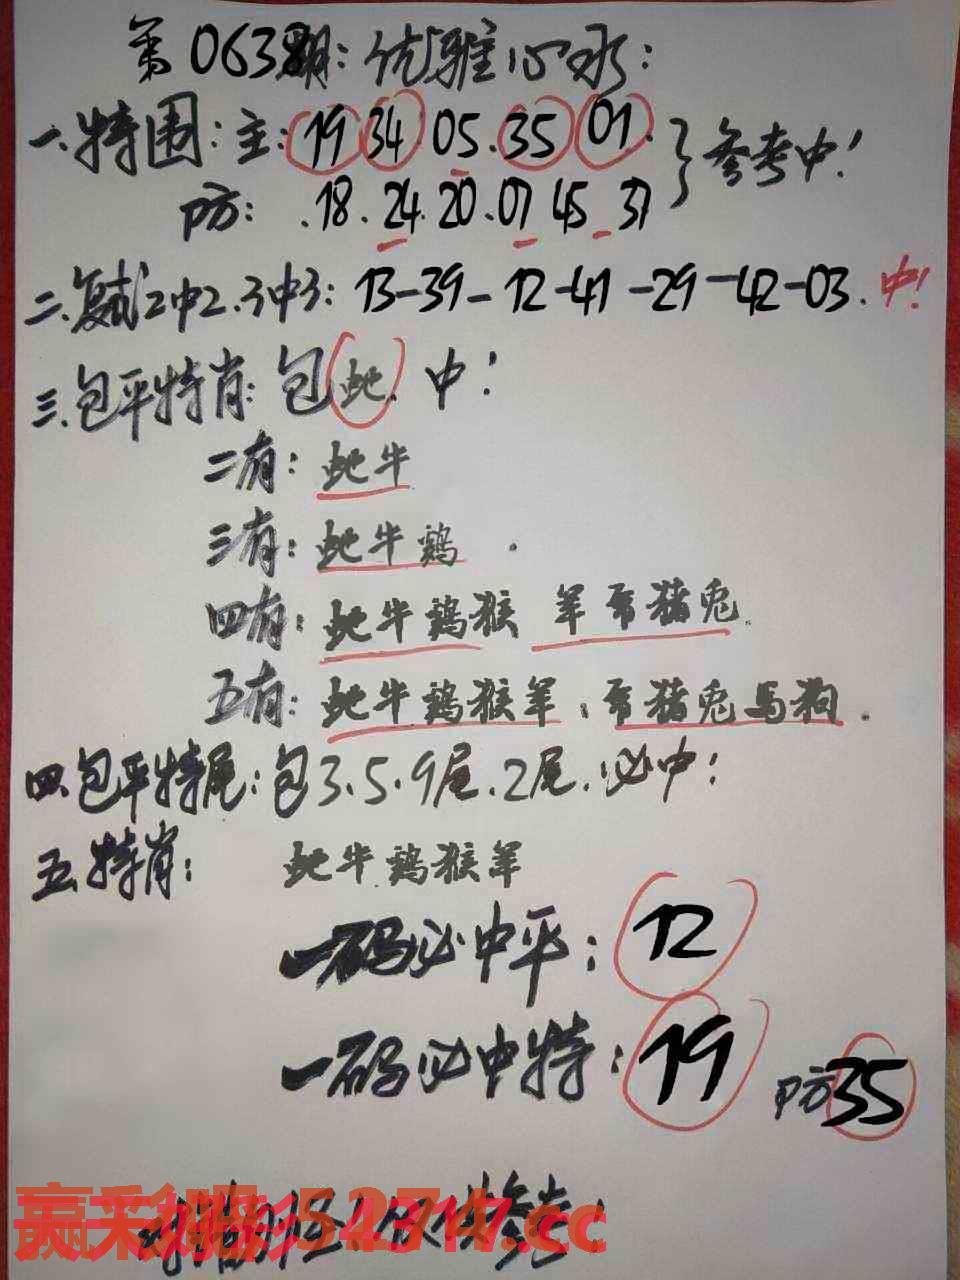 第0638期:优雅心水:
一.特围:主:19 34.05.35 01.}参考中!
防:.18.24.20.07 45 37
二.复式2中2.3中3:13-39-12-41-29-42-03.中!
三.包平特肖:包蛇.中!
二有:蛇牛
三有:蛇牛鸡.
四有:蛇牛鸡猴 羊虎猪兔.
五有:蛇牛鸡猴羊.虎猪兔马狗.
四.包平特尾:包3.5.9尾.2尾.必中!
五.特肖: 蛇牛.鸡猴羊
一码必中平:12
一码必中特:19 防35
赢彩吧:52717.cc